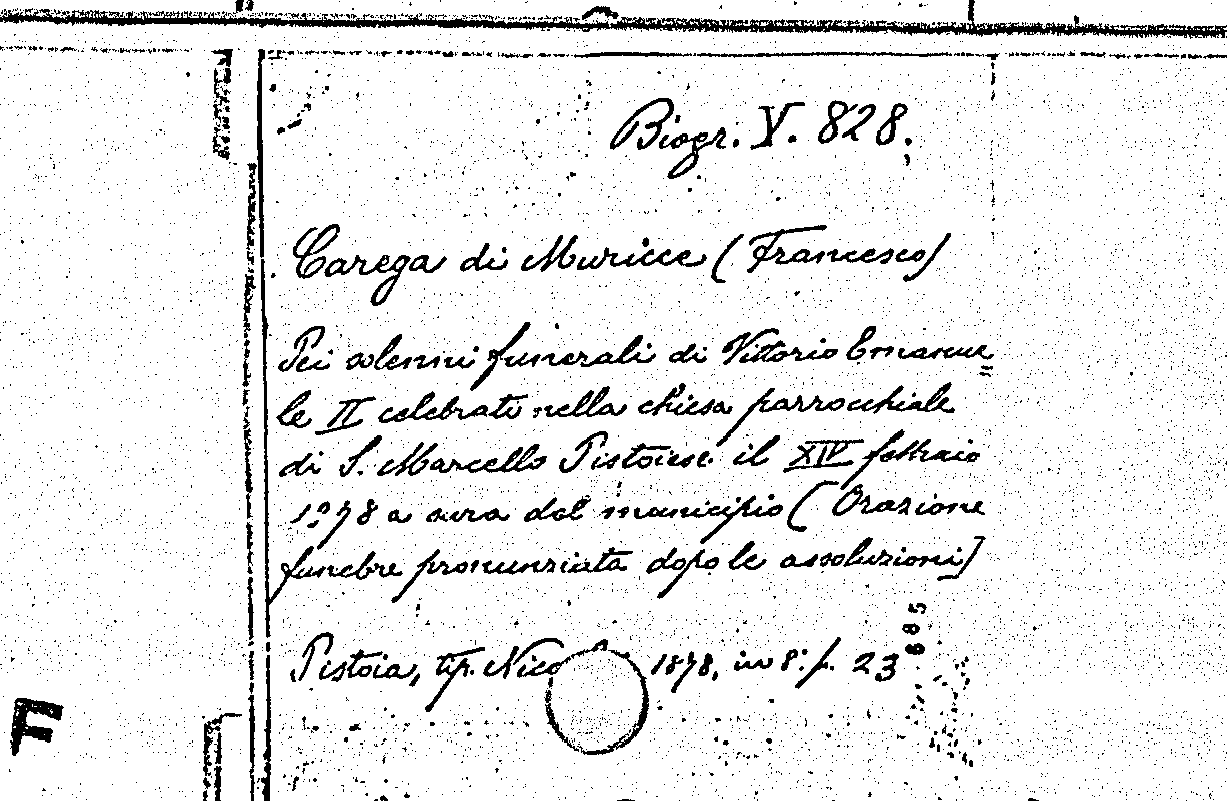 Biogr. V. 828.
Carega di Muricce (Francesco)
Pei solenni funerali di Vittorio Emanue=
le II celebrati nella chiesa parrocchiale
di S. Marcello Pistoiese il XIV febbraio
1878 a cura del municipio (Orazione
funebre pronunziata dopo le assoluzioni)
Pistoia, tip. Nico 1878, in 8.° p. 23
685
F